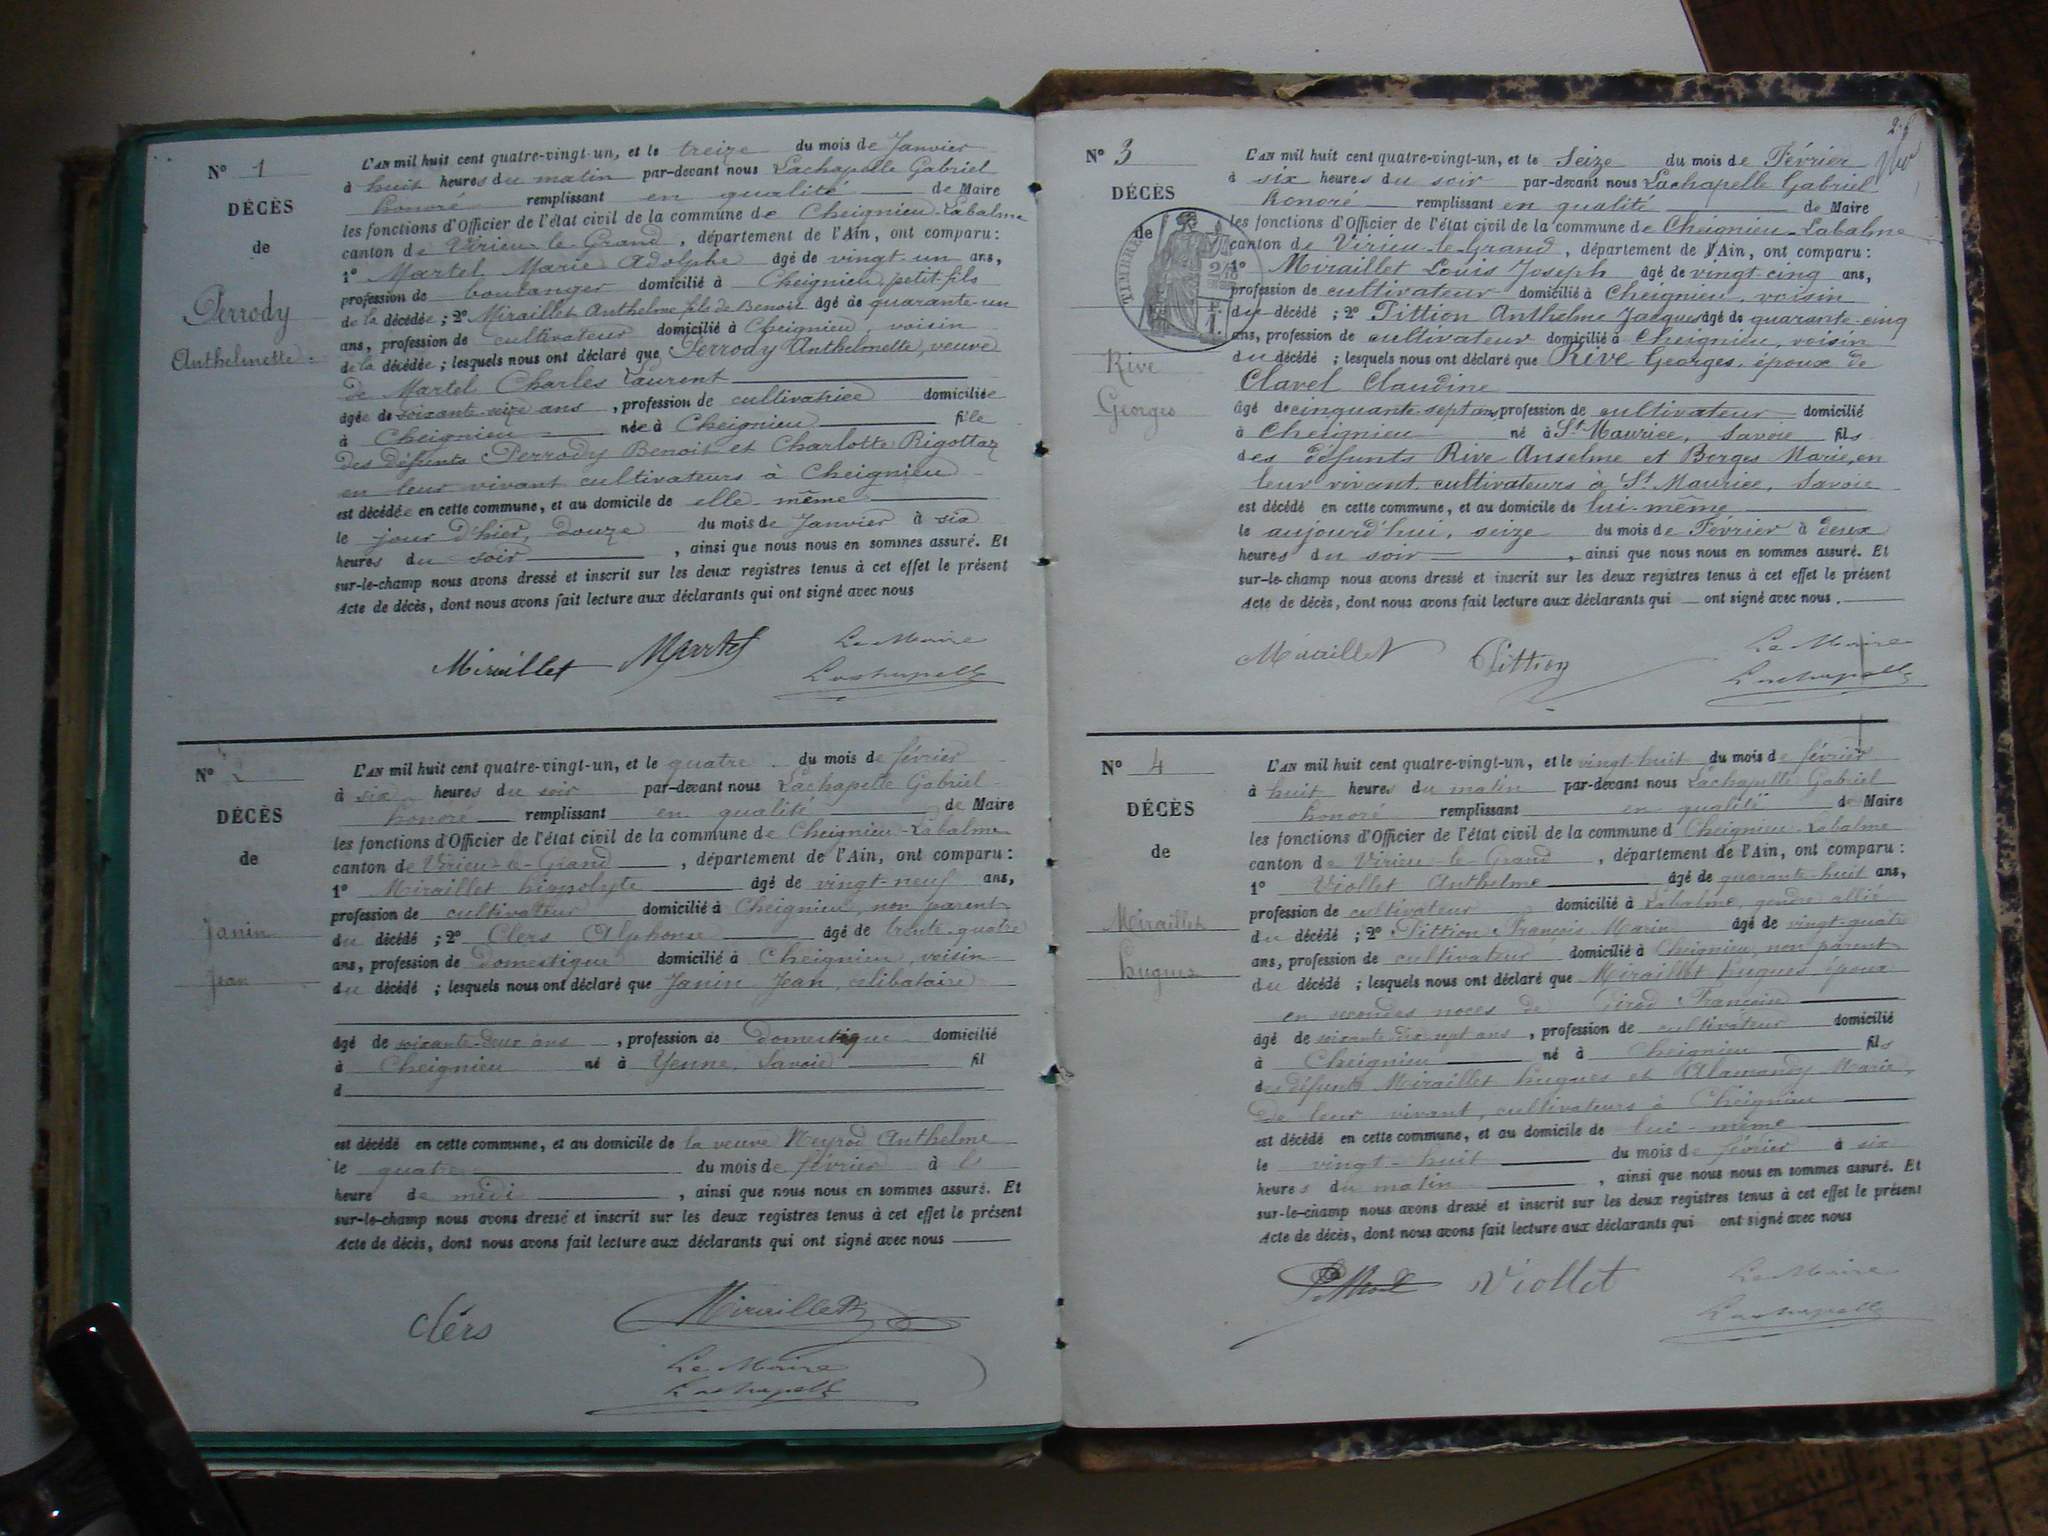 N° 1
DÉCÈS
de
Perrody
Anthelmette
L'AN mil huit cent quatre-vingt-un, et le treize du mois de Janvier
à huit heures du matin par-devant nous Lachapelle Gabriel
honoré remplissant en qualité de Maire
les fonctions d'Officier de l'état civil de la commune de Cheignieu-Labalme
canton de Virieu-le-Grand, département de l'Ain, ont comparu :
1° Martel Marie Adolphe âgé de vingt-un ans,
profession de boulanger domicilié à Cheignieu, petit-fils
de la décédée ; 2° Miraillet Anthelme fils de Benoit âgé de quarante-un
ans, profession de cultivateur domicilié à Cheignieu, voisin
de la décédée ; lesquels nous ont déclaré que Perrody Anthelmette, veuve
de Martel Charles Laurent
âgée de soixante-seize ans, profession de cultivatrice domiciliée
à Cheignieu née à Cheignieu fille
des défunts Perrody Benoit et Charlotte Rigottaz
en leur vivant cultivateurs à Cheignieu
est décédée en cette commune, et au domicile de elle-même
le jour d'hier, douze du mois de Janvier à six
heures du soir, ainsi que nous nous en sommes assuré. Et
sur-le-champ nous avons dressé et inscrit sur les deux registres tenus à cet effet le présent
Acte de décès, dont nous avons fait lecture aux déclarants qui ont signé avec nous
Miraillet Martel Le Maire
Lachapelle
N° 2
DÉCÈS
de
Janin
Jean
L'AN mil huit cent quatre-vingt-un, et le quatre du mois de février
à six heures du soir par-devant nous Lachapelle Gabriel
honoré remplissant en qualité de Maire
les fonctions d'Officier de l'état civil de la commune de Cheignieu-Labalme
canton de Virieu-le-Grand, département de l'Ain, ont comparu :
1° Miraillet hippolyte âgé de vingt-neuf ans,
profession de cultivateur domicilié à Cheignieu, non parent
du décédé ; 2° Clers Alphonse âgé de trente-quatre
ans, profession de domestique domicilié à Cheignieu, voisin
du décédé ; lesquels nous ont déclaré que Janin Jean, célibataire
âgé de soixante-deux ans, profession de Domestique domicilié
à Cheignieu né à Yenne, Savoie fil
d
est décédé en cette commune, et au domicile de la veuve Neyrod Anthelme
le quatre du mois de février à l
heure de midi, ainsi que nous nous en sommes assuré. Et
sur-le-champ nous avons dressé et inscrit sur les deux registres tenus à cet effet le présent
Acte de décès, dont nous avons fait lecture aux déclarants qui ont signé avec nous
Clérs Miraillet
Le Maire
Lachapelle
N° 3
DÉCÈS
de
TIMBRE
2/10
1 F
Rive
Georges
L'AN mil huit cent quatre-vingt-un, et le Seize du mois de Février
à six heures du soir par-devant nous Lachapelle Gabriel
honoré remplissant en qualité de Maire
les fonctions d'Officier de l'état civil de la commune de Cheignieu-Labalme
canton de Virieu-le-Grand, département de l'Ain, ont comparu :
1° Miraillet Louis Joseph âgé de vingt-cinq ans,
profession de cultivateur domicilié à Cheignieu, voisin
du décédé ; 2° Pittion Anthelme Jacques âgé de quarante-cinq
ans, profession de cultivateur domicilié à Cheignieu, voisin
du décédé ; lesquels nous ont déclaré que Rive Georges, époux de
Clavel Claudine
âgé de cinquante-sept ans, profession de cultivateur domicilié
à Cheignieu né à St Maurice, Savoie fils
des défunts Rive Anselme et Berges Marie, en
leur vivant cultivateurs à St Maurice, Savoie
est décédé en cette commune, et au domicile de lui-même
le aujourd'hui, seize du mois de Février à deux
heures du soir, ainsi que nous nous en sommes assuré. Et
sur-le-champ nous avons dressé et inscrit sur les deux registres tenus à cet effet le présent
Acte de décès, dont nous avons fait lecture aux déclarants qui ont signé avec nous.
Miraillet Pittion Le Maire
Lachapelle
N° 4
DÉCÈS
de
Miraillet
hugues
L'AN mil huit cent quatre-vingt-un, et le vingt-huit du mois de février
à huit heures du matin par-devant nous Lachapelle Gabriel
honoré remplissant en qualité de Maire
les fonctions d'Officier de l'état civil de la commune d Cheignieu-Labalme
canton de Virieu-le-Grand, département de l'Ain, ont comparu :
1° Viollet Anthelme âgé de quarante-huit ans,
profession de cultivateur domicilié à Labalme, gendre allié
du décédé ; 2° Pittion François Marin âgé de vingt-quatre
ans, profession de cultivateur domicilié à Cheignieu, non parent
du décédé ; lesquels nous ont déclaré que Miraillet hugues époux
en secondes noces de Girod Françoise
âgé de soixante-dix-sept ans, profession de cultivateur domicilié
à Cheignieu né à Cheignieu fils
des défunts Miraillet hugues et Alamandy Marie,
de leur vivant, cultivateurs à Cheignieu
est décédé en cette commune, et au domicile de lui-même
le vingt-huit du mois de février à six
heures du matin, ainsi que nous nous en sommes assuré. Et
sur-le-champ nous avons dressé et inscrit sur les deux registres tenus à cet effet le présent
Acte de décès, dont nous avons fait lecture aux déclarants qui ont signé avec nous
Pittion Viollet Le Maire
Lachapelle